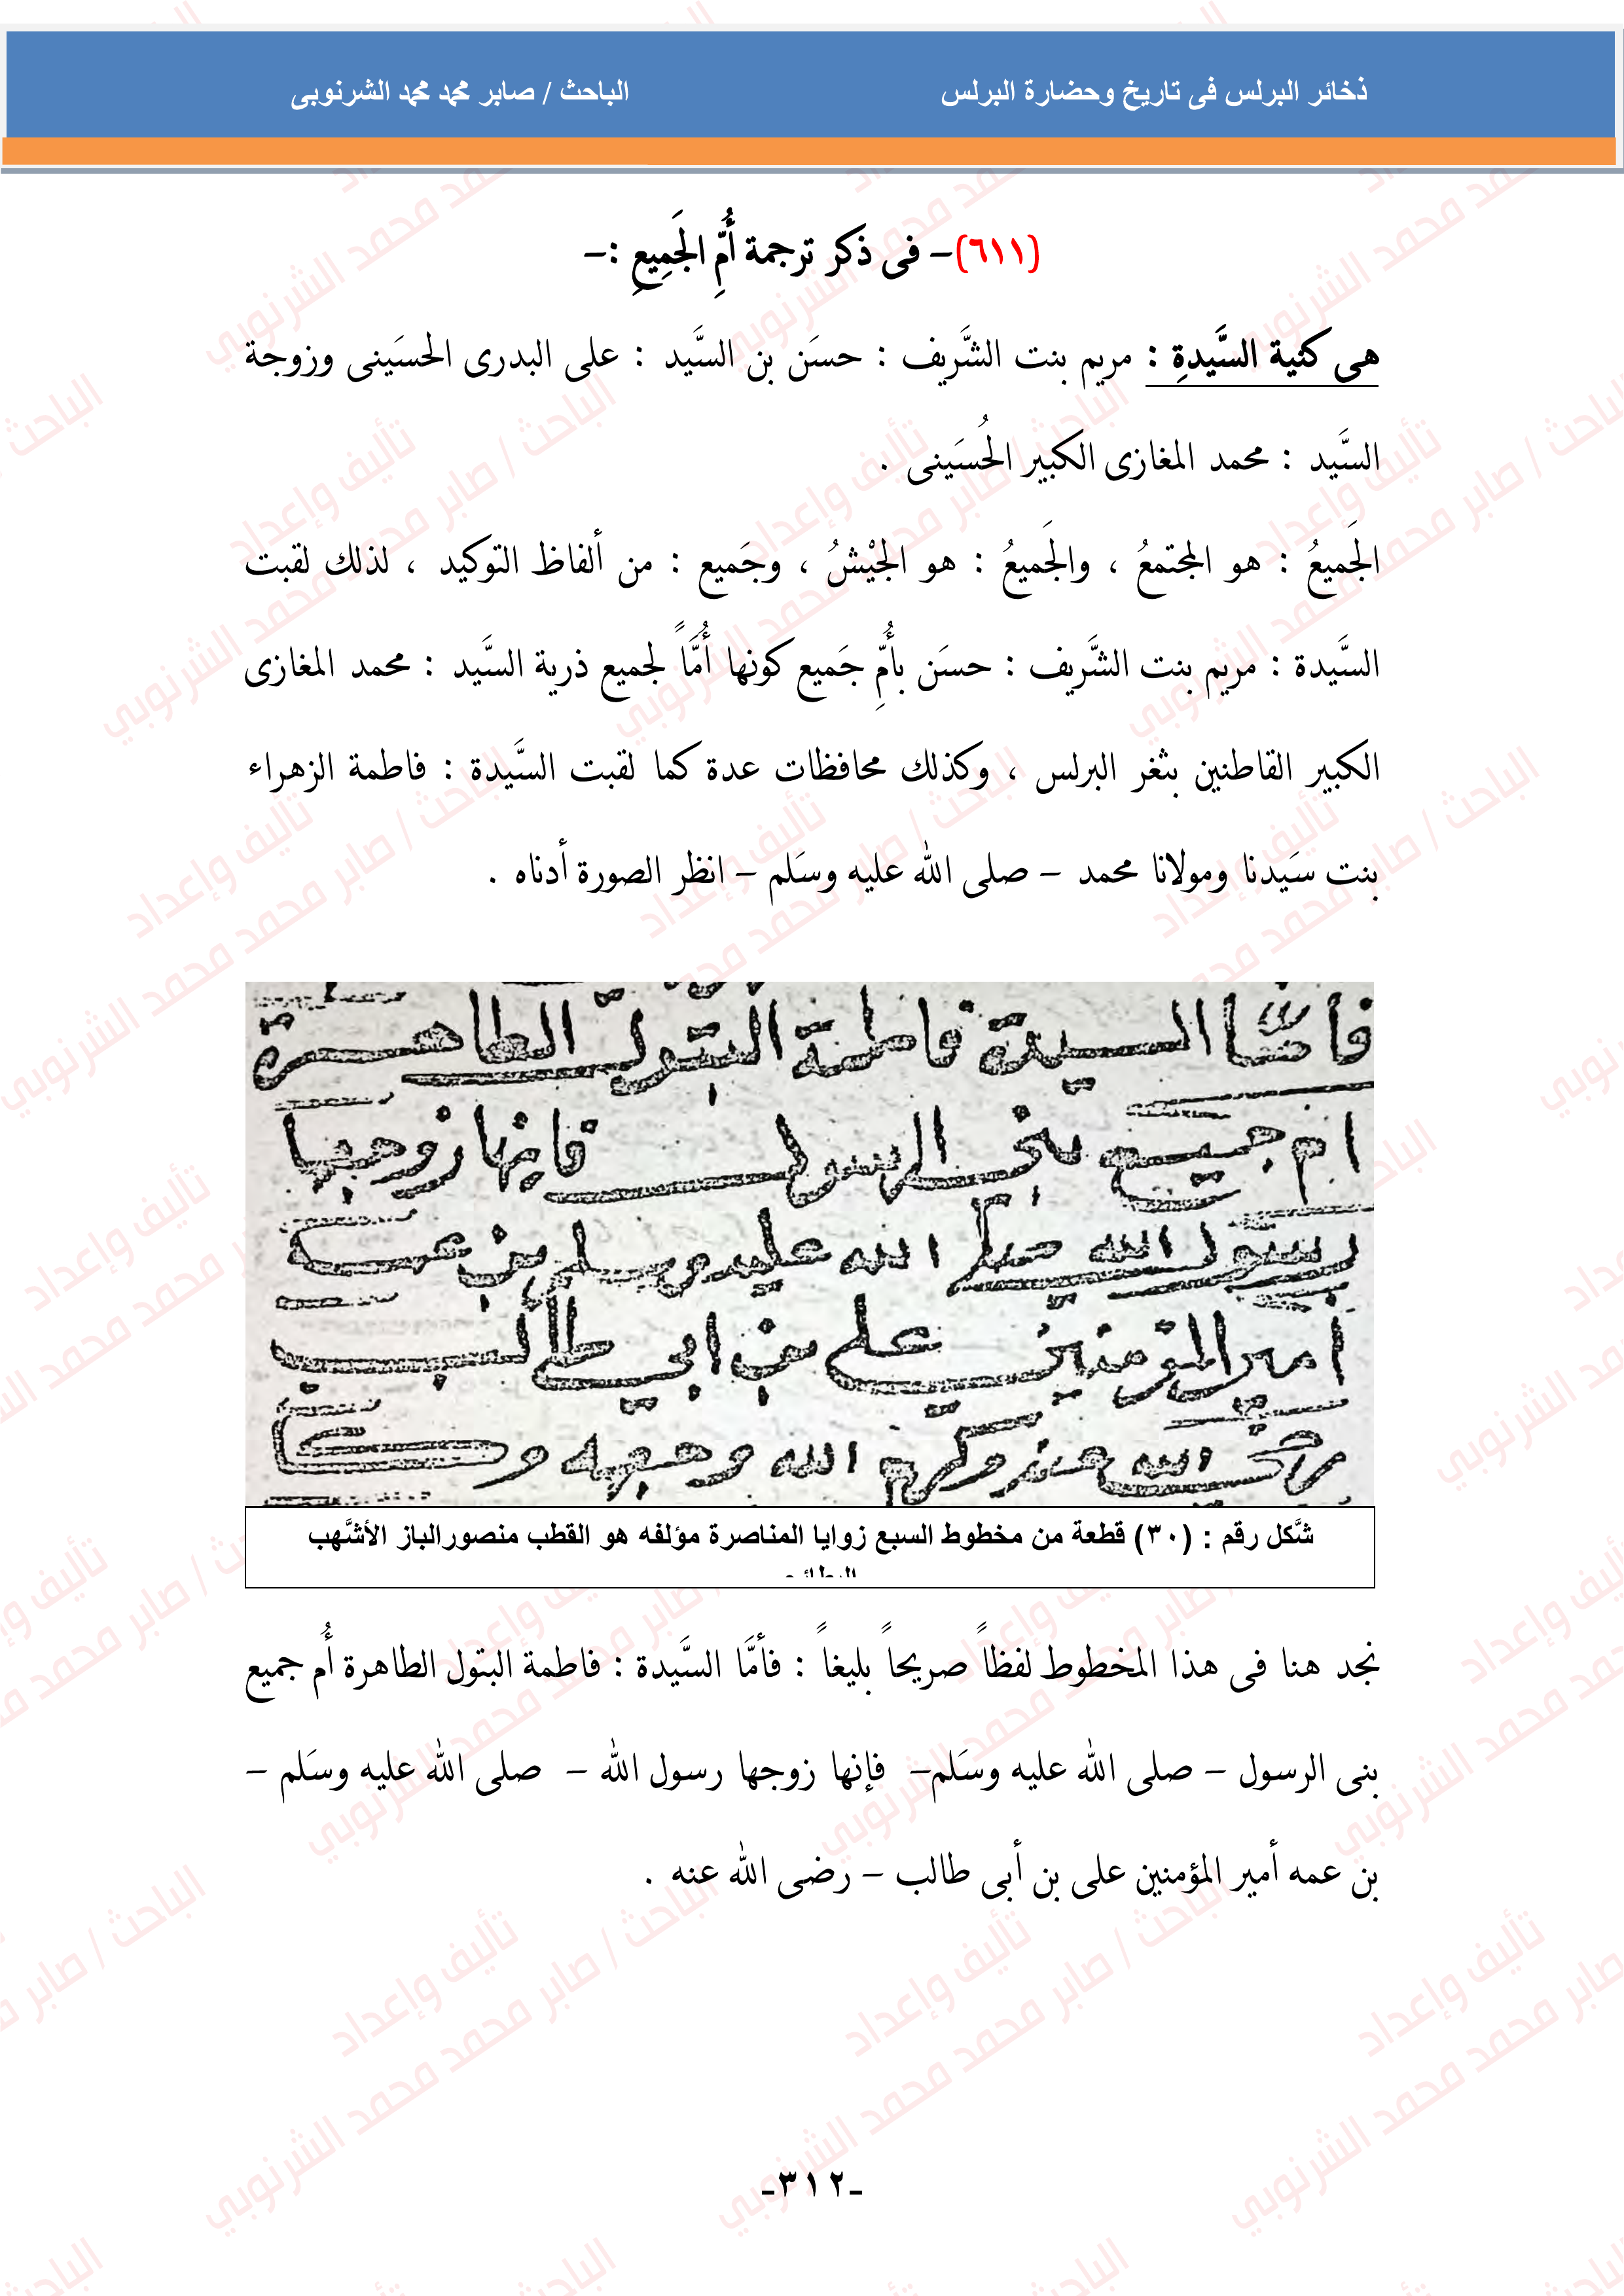 ذخائر البرلس فى تاريخ وحضارة البرلس
الباحث / صابر محمد محمد الشرنوبى
(٦١١)– فى ذكر ترجمة أُمِّ الجَمِيعِ :–
هى كنية السَّيدةِ : مريم بنت الشَّريف : حسَن بن السَّيد : على البدرى الحسَينى وزوجة
السَّيد : محمد المغازى الكبير الحُسَينى .
الجَميعُ : هو المجتمعُ ، والجَميعُ : هو الجيْشُ ، وجَميع : من ألفاظ التوكيد ، لذلك لقبت
السَّيدة : مريم بنت الشَّريف : حسَن بأُمِّ جَميع كونها أُمَّاً لجميع ذرية السَّيد : محمد المغازى
الكبير القاطنين بثغر البرلس ، وكذلك محافظات عدة كما لقبت السَّيدة : فاطمة الزهراء
بنت سَيدنا ومولانا محمد – صلى الله عليه وسَلم – انظر الصورة أدناه .
فامّا السيدة فاطمة البتول الطاهرة
ام جميع بنى الرسول فانها زوجها
رسول الله صلى الله عليه وسلم بن عمه
امير المؤمنين على بن ابي طالب
رضى الله عنه وكرم الله وجهه وكا
شَكل رقم : (٣٠) قطعة من مخطوط السبع زوايا المناصرة مؤلفه هو القطب منصورالباز الأشَهب
نجد هنا فى هذا المخطوط لفظاً صريحاً بليغاً : فأمَّا السَّيدة : فاطمة البتول الطاهرة أُم جميع
بنى الرسول – صلى الله عليه وسَلم– فإنها زوجها رسول الله – صلى الله عليه وسَلم –
بن عمه أمير المؤمنين على بن أبى طالب – رضى الله عنه .
-٣١٢-
تأليف وإعداد
الباحث / صابر محمد محمد الشرنوبي